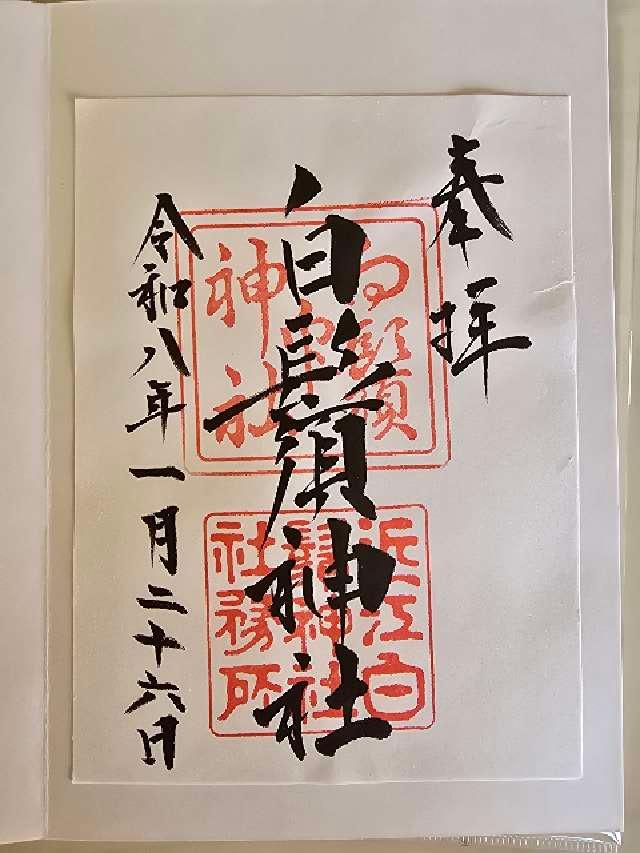 奉拝
白鬚神社
令和八年一月二十六日
近江白
鬚神社
社務所